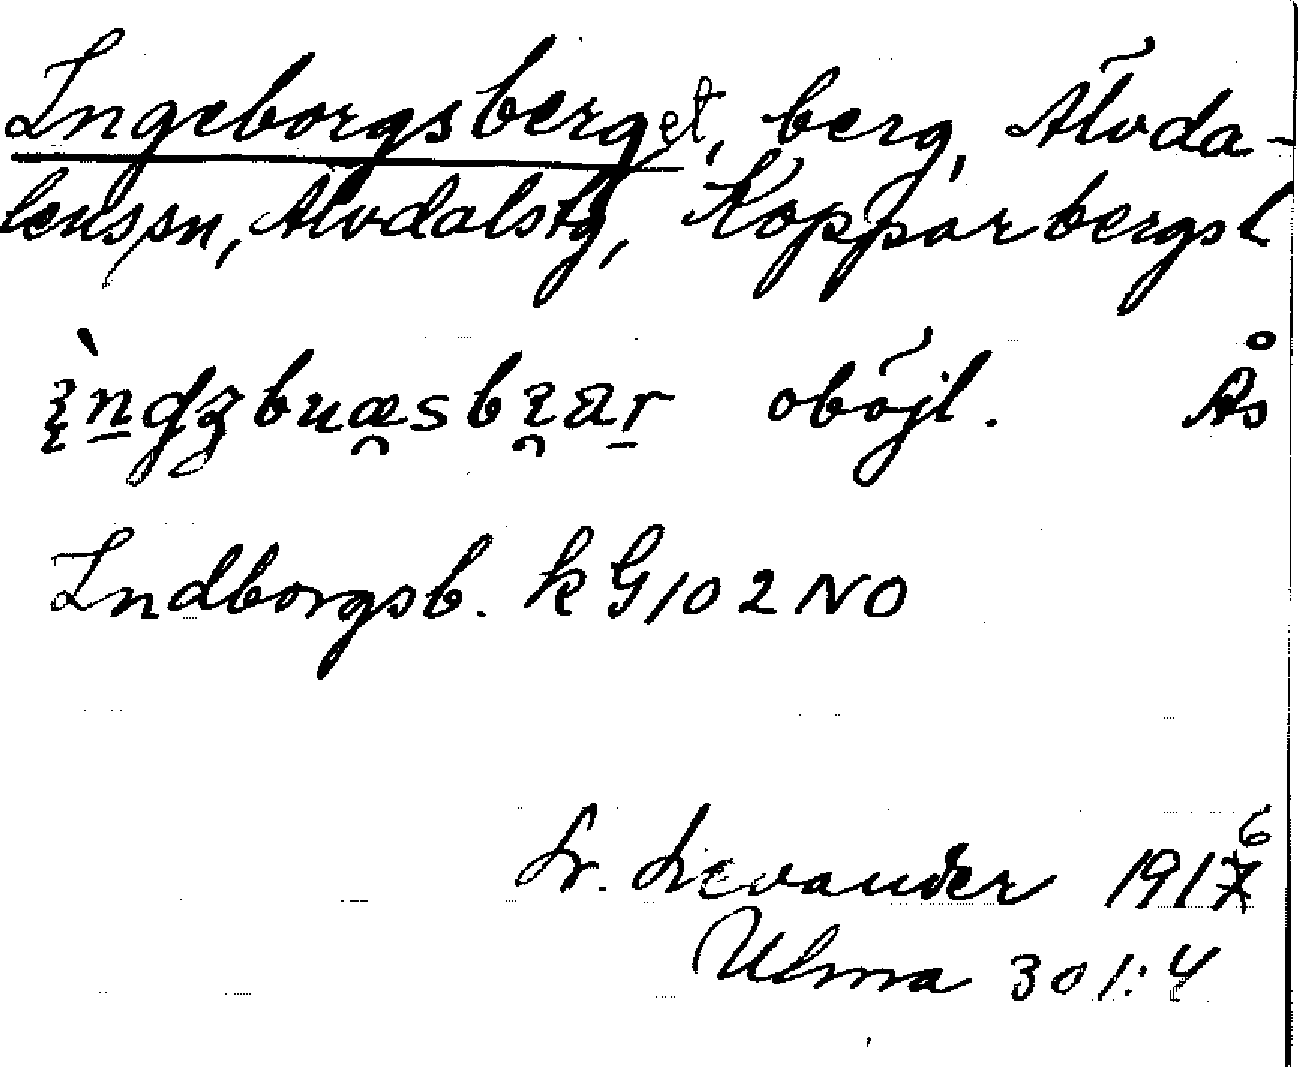 Ingeborgsberget, berg, Älvda-
lens sn, Älvdals tg, Kopparbergs l
oböjl. Ås
Indborgsb. k G 102 NO
L. Levander 1916
Ulma 301:4